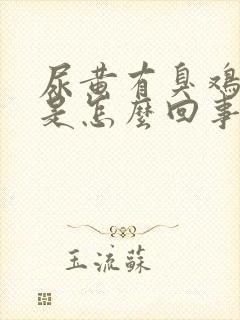 尿黄有臭鸡
是怎麼回事
玉流蘇